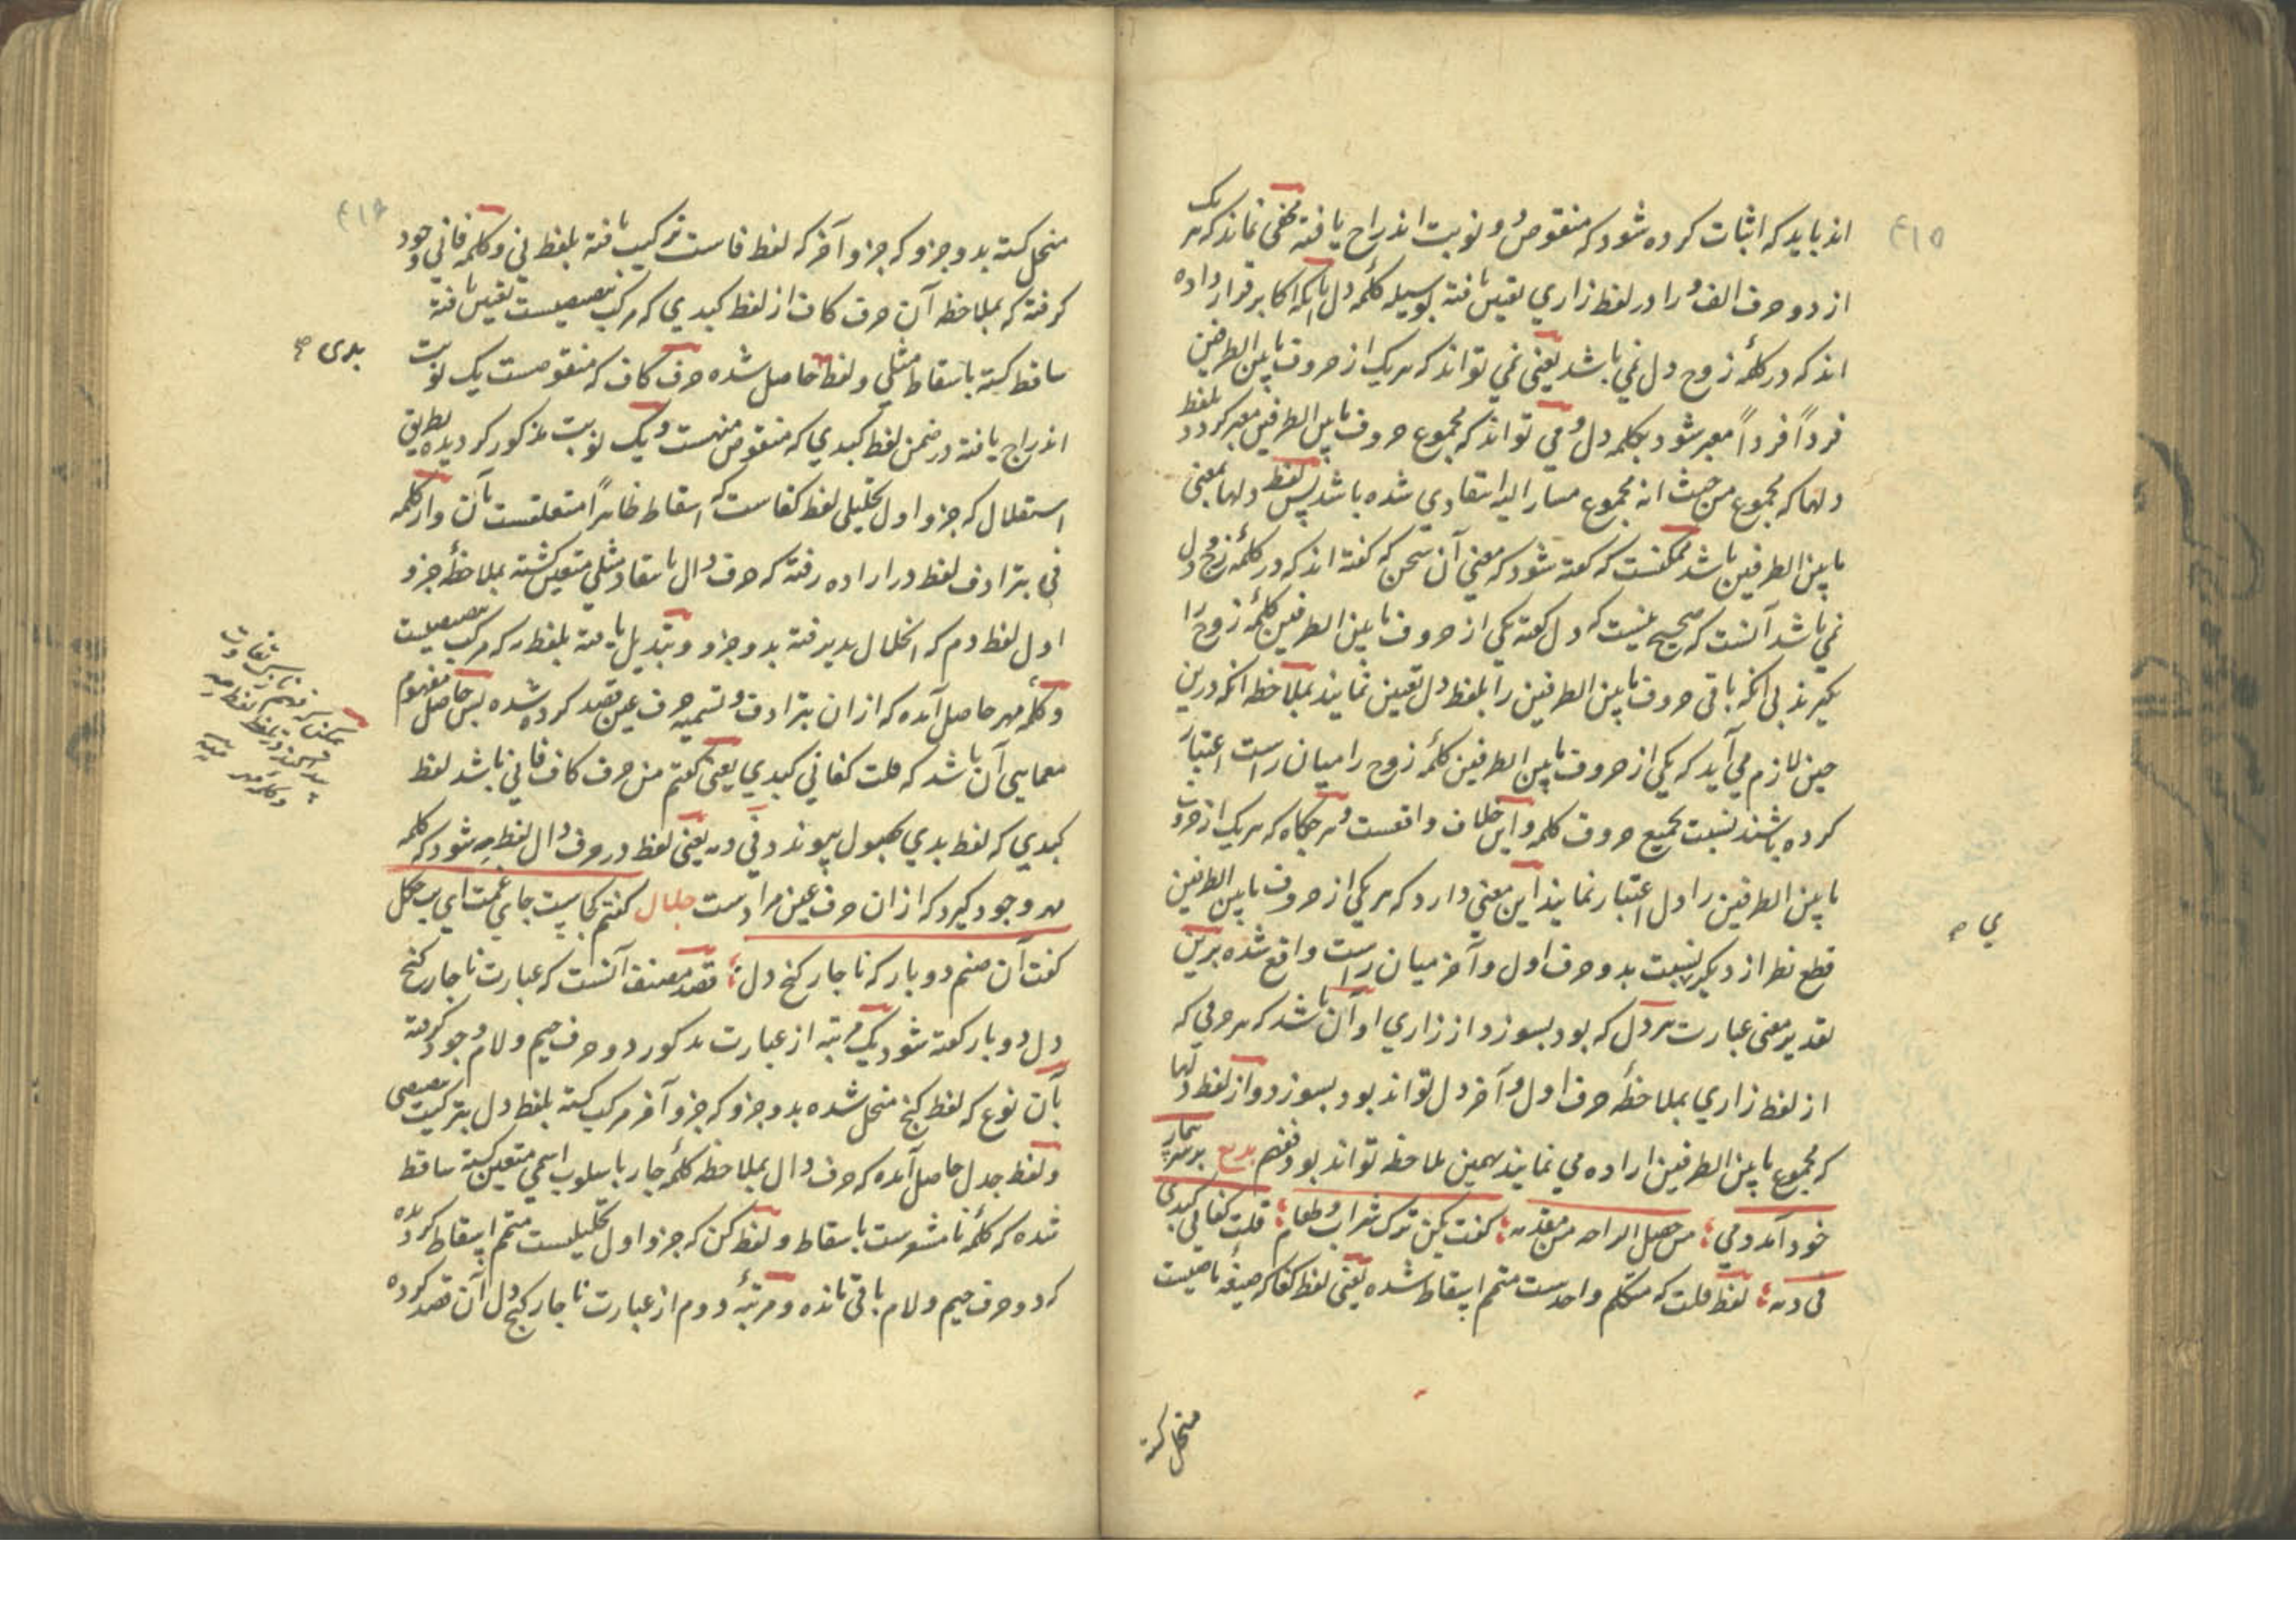 ۴۱۵
اند باید که اثبات کرده شود که منقوص و دو نوبت اندراج یافته مخفی نماند که هر یک
از دو حرف الف و را در لفظ زاری تعین یافته بوسیله کلمه دل بآنکه اکابر قرار داده
اند که در کلمهٔ زوج دل نمی باشد یعنی نمی تواند که هر یک از حروف مابین الطرفین
فرداً فرداً معبر شود بکلمه دل و می تواند که مجموع حروف مابین الطرفین معبر کردد بلفظ
دلها که مجموع من حیث انه مجموع مشار الیه انتقادی شده باشد پس لفظ دلها بمعنی
مابین الطرفین باشد ممکنست که کفته شود که معنی آن سخن که کفته اند که در کلمهٔ زوج دل
نمی باشد آنست که صحیح نیست که دل کفته یکی از حروف مابین الطرفین کلمهٔ زوج را
بکیرند بی آنکه باقی حروف مابین الطرفین را بلفظ دل تعیین نمایند بملاحظه آنکه درین
حین لازم می آید که یکی از حروف مابین الطرفین کلمهٔ زوج را میان راست اعتبار
کرده باشند نسبت بجمیع حروف کلمه و این خلاف واقعست و هرجکاه که هر یک از حروف
مابین الطرفین را دل اعتبار نمایند این معنی دارد که هر یکی از حروف مابین الطرفین
ی صح
قطع نظر از دیکر نسبت بدو حرف اول و آخر میان راست واقع شده برین
تقدیر معنی عبارت هر دل که بود بسوزد از زاری او آن باشد که هر حرفی که
از لفظ زاری بملاحظهٔ حرف اول و آخر دل تواند بود بسوزد و از لفظ دلها
که مجموع مابین الطرفین اراده می نمایند همین ملاحظه تواند بود فافهم بدیع بر سر بیمار
خود آمد دمی ؛ من حصل الراحه من مقدمه ؛ کفت بکن ترک شراب و طعام ؛ قلت کفانی کبدی
فی دمه ؛ لفظ قلت که متکلم واحدست متمم اسقاط شده یعنی لفظ کفا که صیغهٔ ماضیست
منحل کشته
۴۱۶
منحل کشته بدو جزو که جزو آخر که لفظ فاست ترکیب یافته بلفظ نی و کلمه فانی وجود
کرفته که بملاحظه آن حرف کاف از لفظ کبدی که مرکب تنصیصیست تعین یافته
ساقط کشته باسقاط مثلی و لفظ حاصل شده حرف کاف که منقوصست یک نوبت
بدی صح
اندراج یافته در ضمن لفظ کبدی که منقوص منهست و یک نوبت مذکور کردیده بطریق
استقلال که جزو اول تحلیلی لفظ کفاست که اسقاط ظاهراً متعلقست بآن و از کلمه
فی بترادف لفظ در اراده رفته که حرف دال باسقاط مثلی متعین کشته بملاحظهٔ جزو
اول لفظ دم که انحلال پذیرفته بدو جزو و تبدیل یافته بلفظ ر که مرکب تنصیصیست
و کلمه مهر حاصل آمده که از ان بترادف و تسمیه حرف عین قصد کرده شده پس حاصل مفهوم
معمایی آن باشد که قلت کفانی کبدی یعنی کفتم من حرف کاف فانی باشد لفظ
کبدی که لفظ بدی بحصول پیوندد و فی دمه یعنی لفظ در حرف دال لفظ مه شود که کلمه
مهر وجود کیرد که از ان حرف عین مرادست جلال کفتم کجاست جای غمت ای بت چکل
کفت آن صنم دو بار که ناچار کنج دل ؛ قصد مصنف آنست که عبارت ناچار کنج
دل دو بار کفته شود یک مرتبه از عبارت مذکور دو حرف جیم و لام وجود کرفته
بآن نوع که لفظ کنج منحل شده بدو جزو که جزو آخر مرکب کشته بلفظ دل بترکیب تنصیصی
و لفظ جدل حاصل آمده که حرف دال بملاحظه کلمهٔ چار باسلوب اسمی متعین کشته ساقط
شده که کلمهٔ نا مشعرست باسقاط و لفظ کن که جزو اول تحلیلیست متمم اسقاط کردیده
که دو حرف جیم و لام باقی مانده و مرتبهٔ دوم از عبارت ناچار کنج دل آن قصد کرده